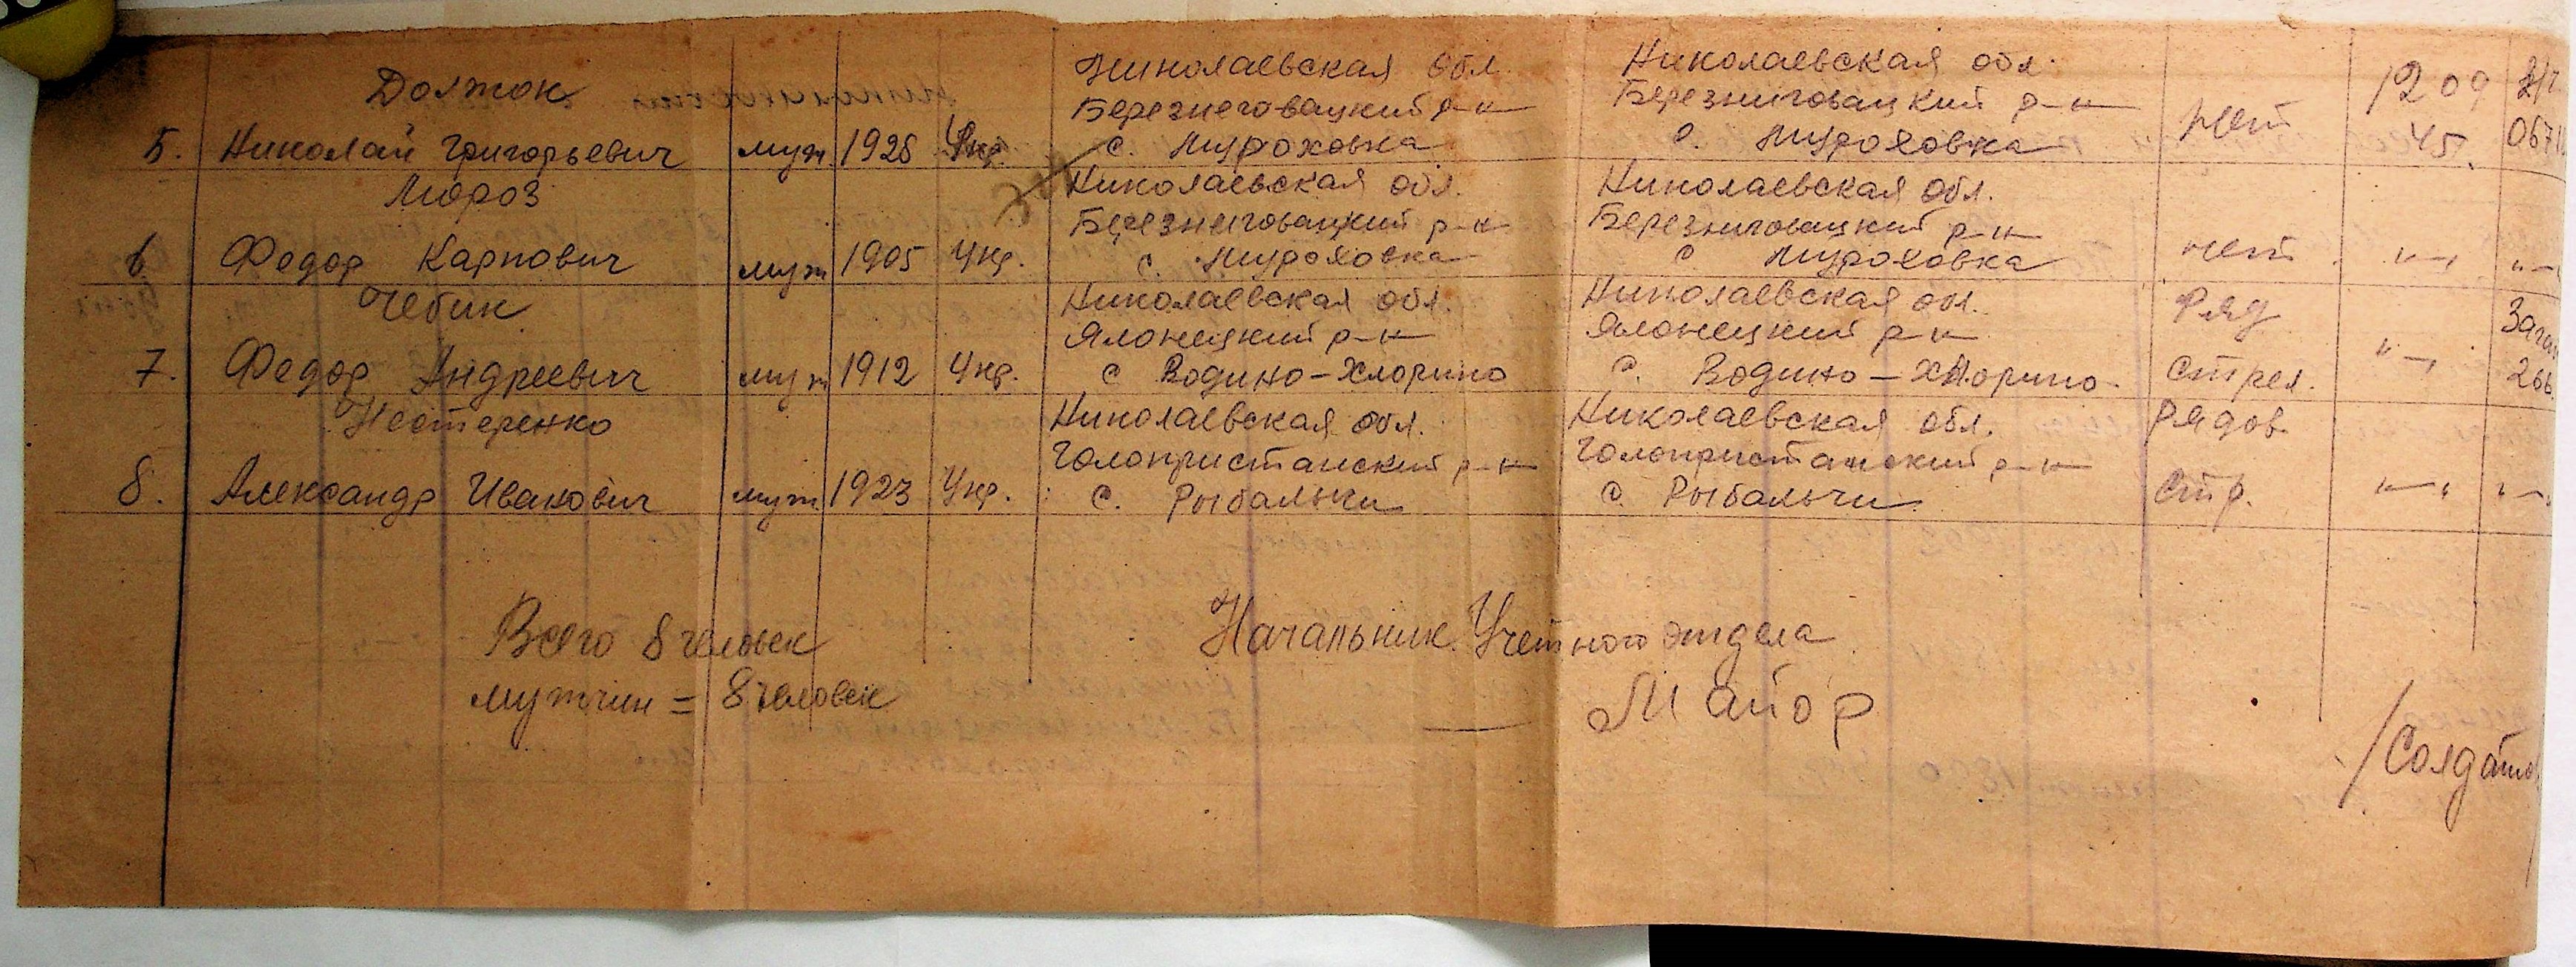 Должок
5. Николай Григорьевич муж. 1926 Укр.
Николаевская обл.
Березнеговацкий р-н
с. Мураховка
Николаевская обл.
Березниговацкий р-н
с. Муроховка
нет
12 09
45.
Мороз
6. Федор Карпович муж 1905 Укр.
Николаевская обл.
Березниговацкий р-н
с. Муроховка
Николаевская обл.
Березниговацкий р-н
с Муроховка
нет
"—" "—
Чебик
7. Федор Андреевич муж 1912 Укр.
Николаевская обл.
Яланецкий р-н
с Водино-Хлорино
Николаевская обл.
Яланецкий р-н
с. Водино-Хлорино
Ряд
стрел.
"—"
266
Нестеренко
8. Александр Иванович муж 1923 Укр.
Николаевская обл.
Голопристанский р-н
с. Рыбальчи
Николаевская обл.
Голопристанский р-н
с. Рыбальчи
Рядов.
стр.
"—" "—"
Всего 8 человек
мужчин = 8 человек
Начальник Учетного отдела
Майор
/Солдатов